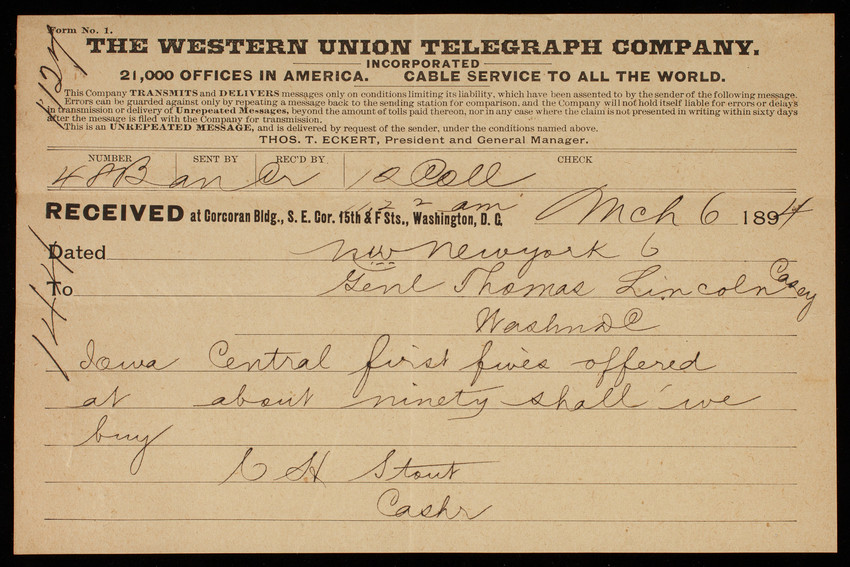 Form No. 1.
THE WESTERN UNION TELEGRAPH COMPANY.
INCORPORATED
21,000 OFFICES IN AMERICA. CABLE SERVICE TO ALL THE WORLD.
This Company TRANSMITS and DELIVERS messages only on conditions limiting its liability, which have been assented to by the sender of the following message.
Errors can be guarded against only by repeating a message back to the sending station for comparison, and the Company will not hold itself liable for errors or delays
in transmission or delivery of Unrepeated Messages, beyond the amount of tolls paid thereon, nor in any case where the claim is not presented in writing within sixty days
after the message is filed with the Company for transmission.
This is an UNREPEATED MESSAGE, and is delivered by request of the sender, under the conditions named above.
THOS. T. ECKERT, President and General Manager.
NUMBER SENT BY REC'D BY CHECK
48B an Cr 10 Coll
1122 am
RECEIVED at Corcoran Bldg., S. E. Cor. 15th & F Sts., Washington, D. C. Mch 6 1894
Dated Newyork 6
To Genl Thomas Lincoln Casey
Washn DC
Iowa Central first fives offered
at about ninety shall we
buy
C H Stout
Cashr
127
144